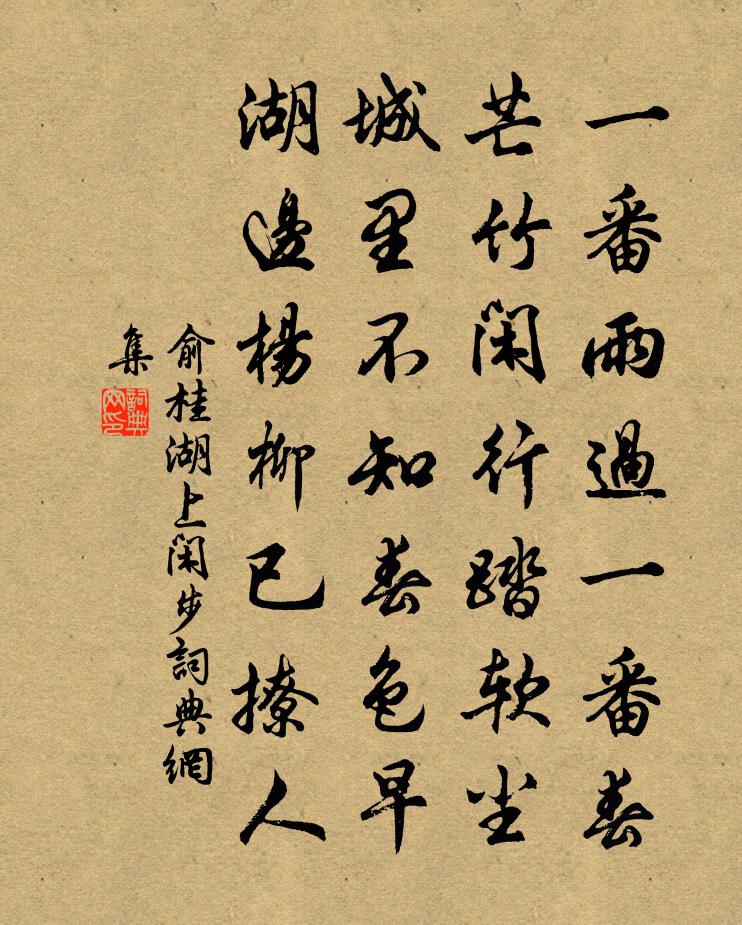 一番雨過一番春
芒竹閑行踏軟尘
城里不知春色早
湖邊楊柳已撩人
俞桂湖上閑步詞典網
集
詞典
网印